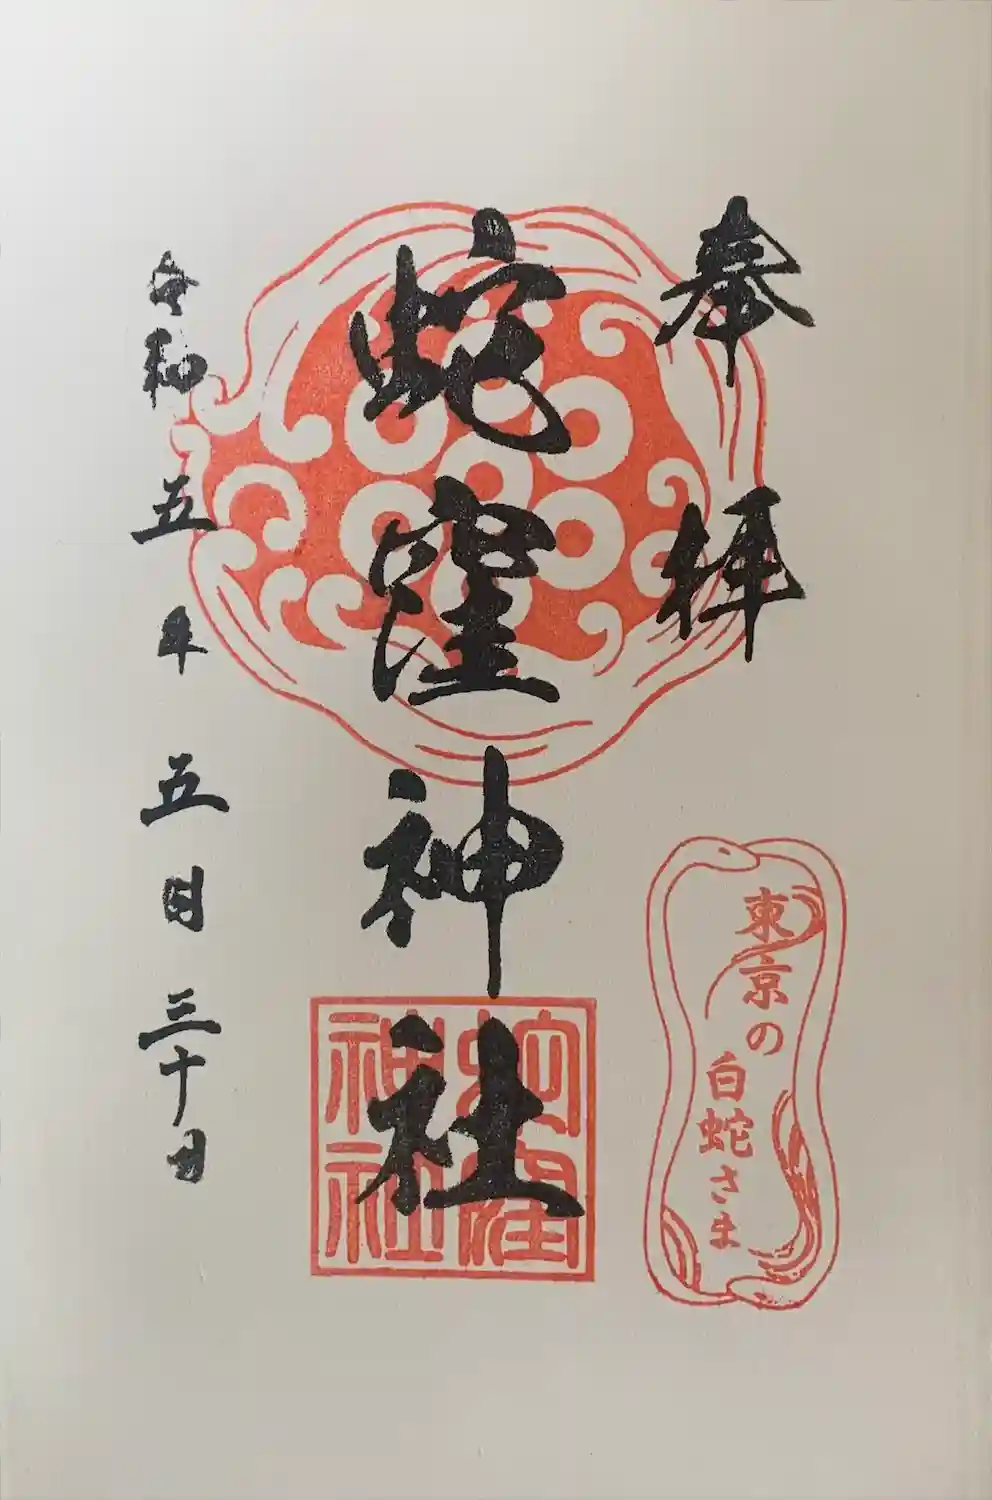 奉拝
東京の
白蛇さま
蛇窪神社
蛇窪
神社
令和五年五月三十日